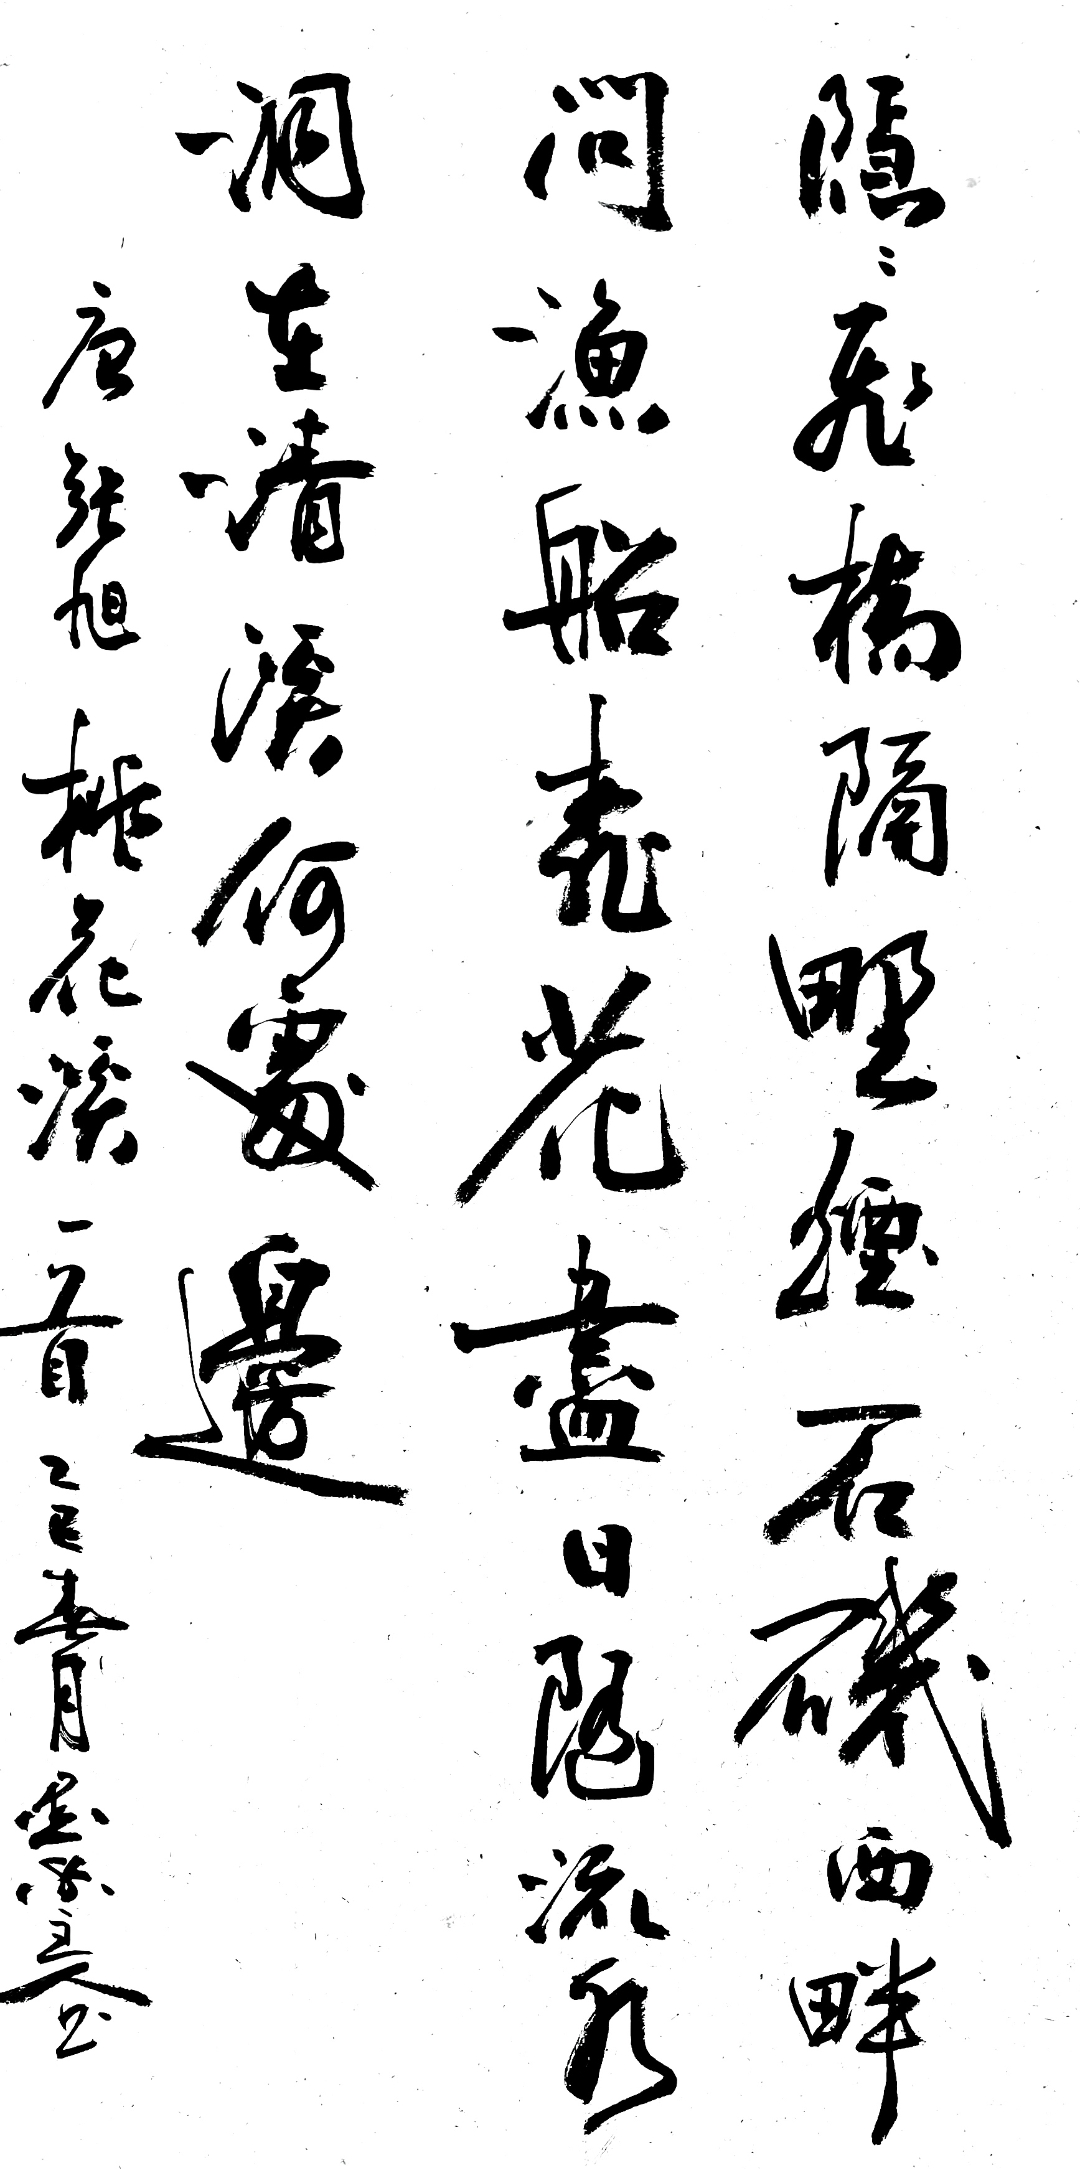 隱〻飛橋隔野煙石磯西畔
問漁船桃花盡日隨流水
洞在清溪何處邊
唐張旭桃花溪一首乙巳春月主人书